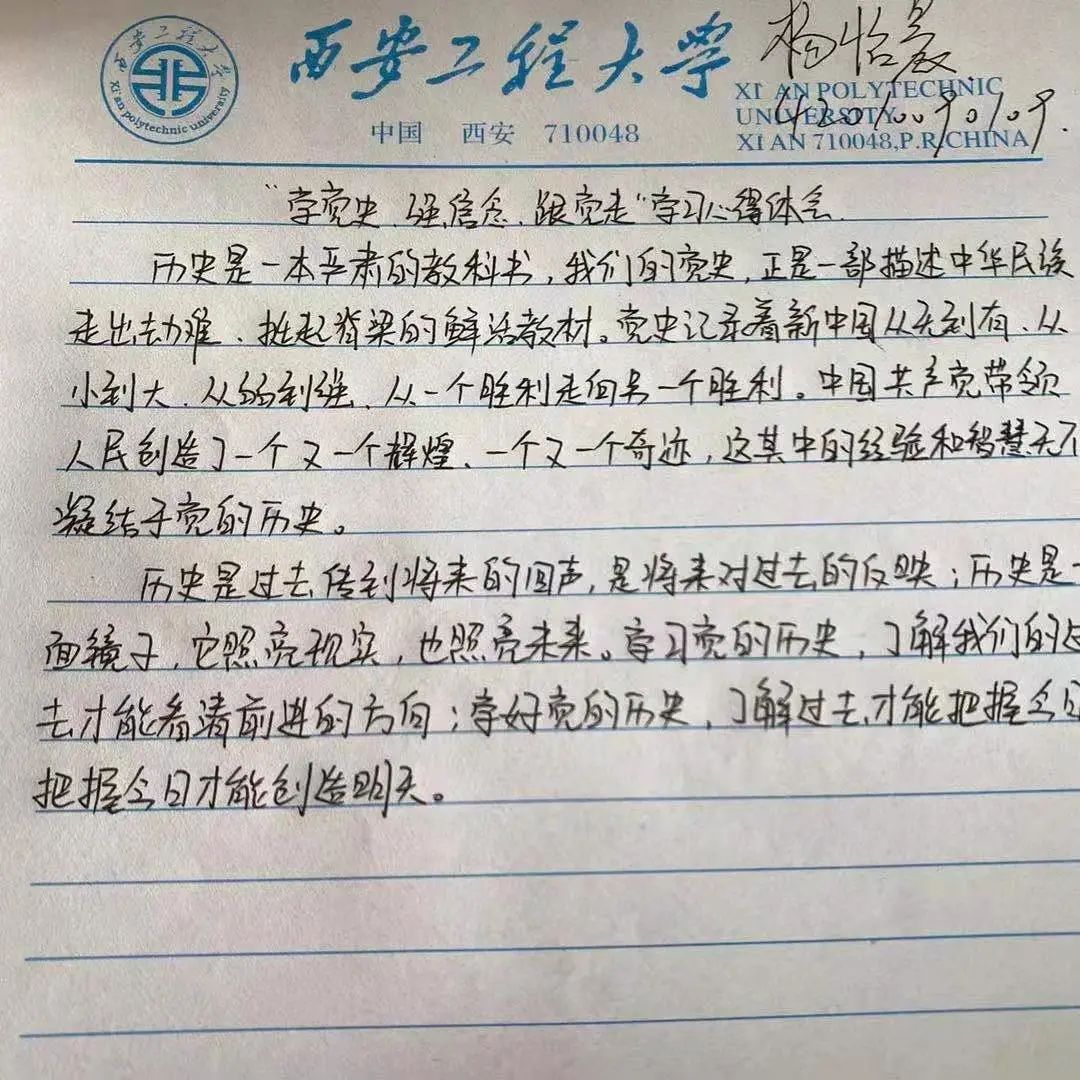 西安工程大学
杨怡
XI'AN POLYTECHNIC
UNIVERSITY
中国 西安 710048
XI AN 710048,P.R.CHINA
西安工程大学
Xi'an polytechnic university
“学党史、强信念、跟党走”学习心得体会
历史是一本严肃的教科书，我们的党史，正是一部描述中华民族
走出劫难、挺起脊梁的鲜活教材。党史记录着新中国从无到有、从
小到大、从弱到强、从一个胜利走向另一个胜利。中国共产党带领
人民创造了一个又一个辉煌、一个又一个奇迹，这其中的经验和智慧无不
凝结于党的历史。
历史是过去传到将来的回声，是将来对过去的反映；历史是一
面镜子，它照亮现实，也照亮未来。学习党的历史，了解我们的过
去才能看清前进的方向；学好党的历史，了解过去才能把握今日
把握今日才能创造明天。